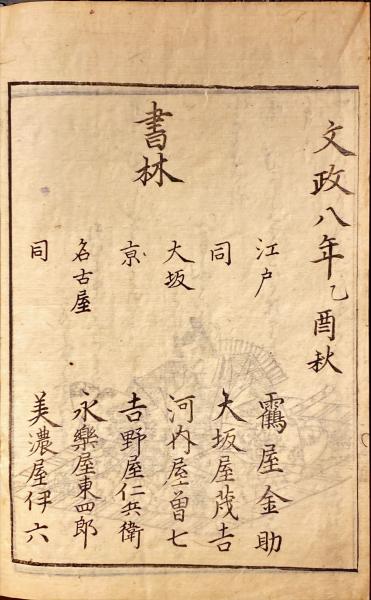 文政八年乙酉秋
書林
江戸 靏屋金助
同 大坂屋茂吉
大坂 河内屋曽七
京 吉野屋仁兵衛
名古屋 永樂屋東四郎
同 美濃屋伊六